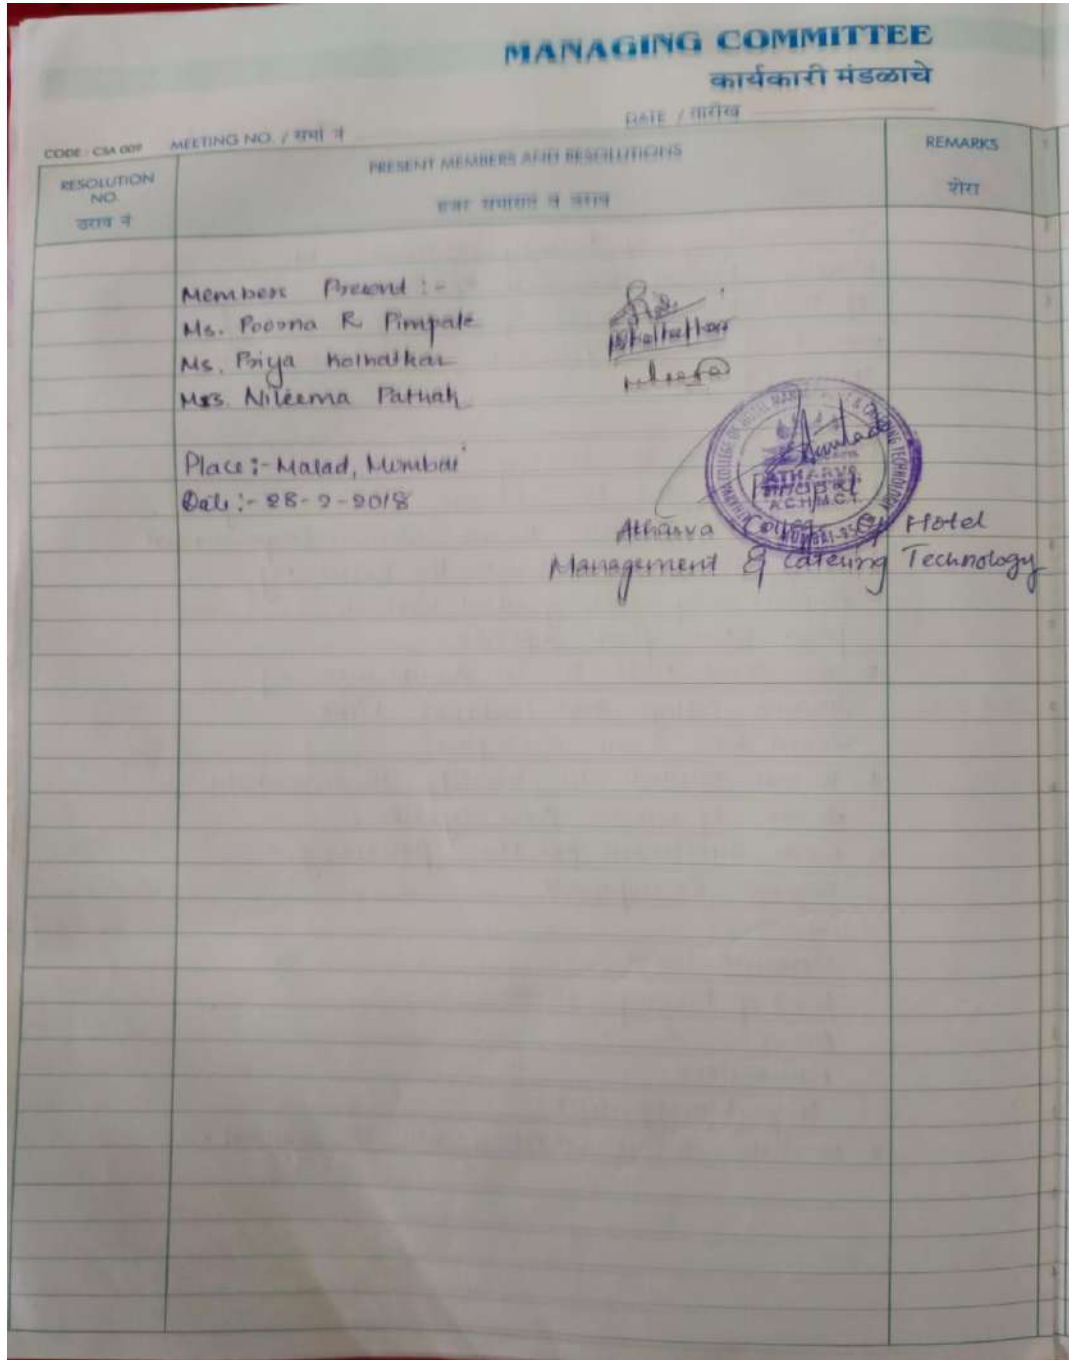 MANAGING COMMITTEE
कार्यकारी मंडळाचे
DATE / तारीख
CODE : CSA 009 MEETING NO. / सभा नं
RESOLUTION NO.
ठराव नं
PRESENT MEMBERS AND RESOLUTIONS
हजर सभासद व ठराव
REMARKS
शेरा
Members Present :-
Ms. Poorna R Pimpale
Ms. Priya Kolhatkar
Mrs. Nileema Pathak
Place :- Malad, Mumbai
Date :- 28-2-2018
ATHARVA
Principal
A.C.H.M.C.T.
Atharva College Of Hotel
Management & Catering Technology